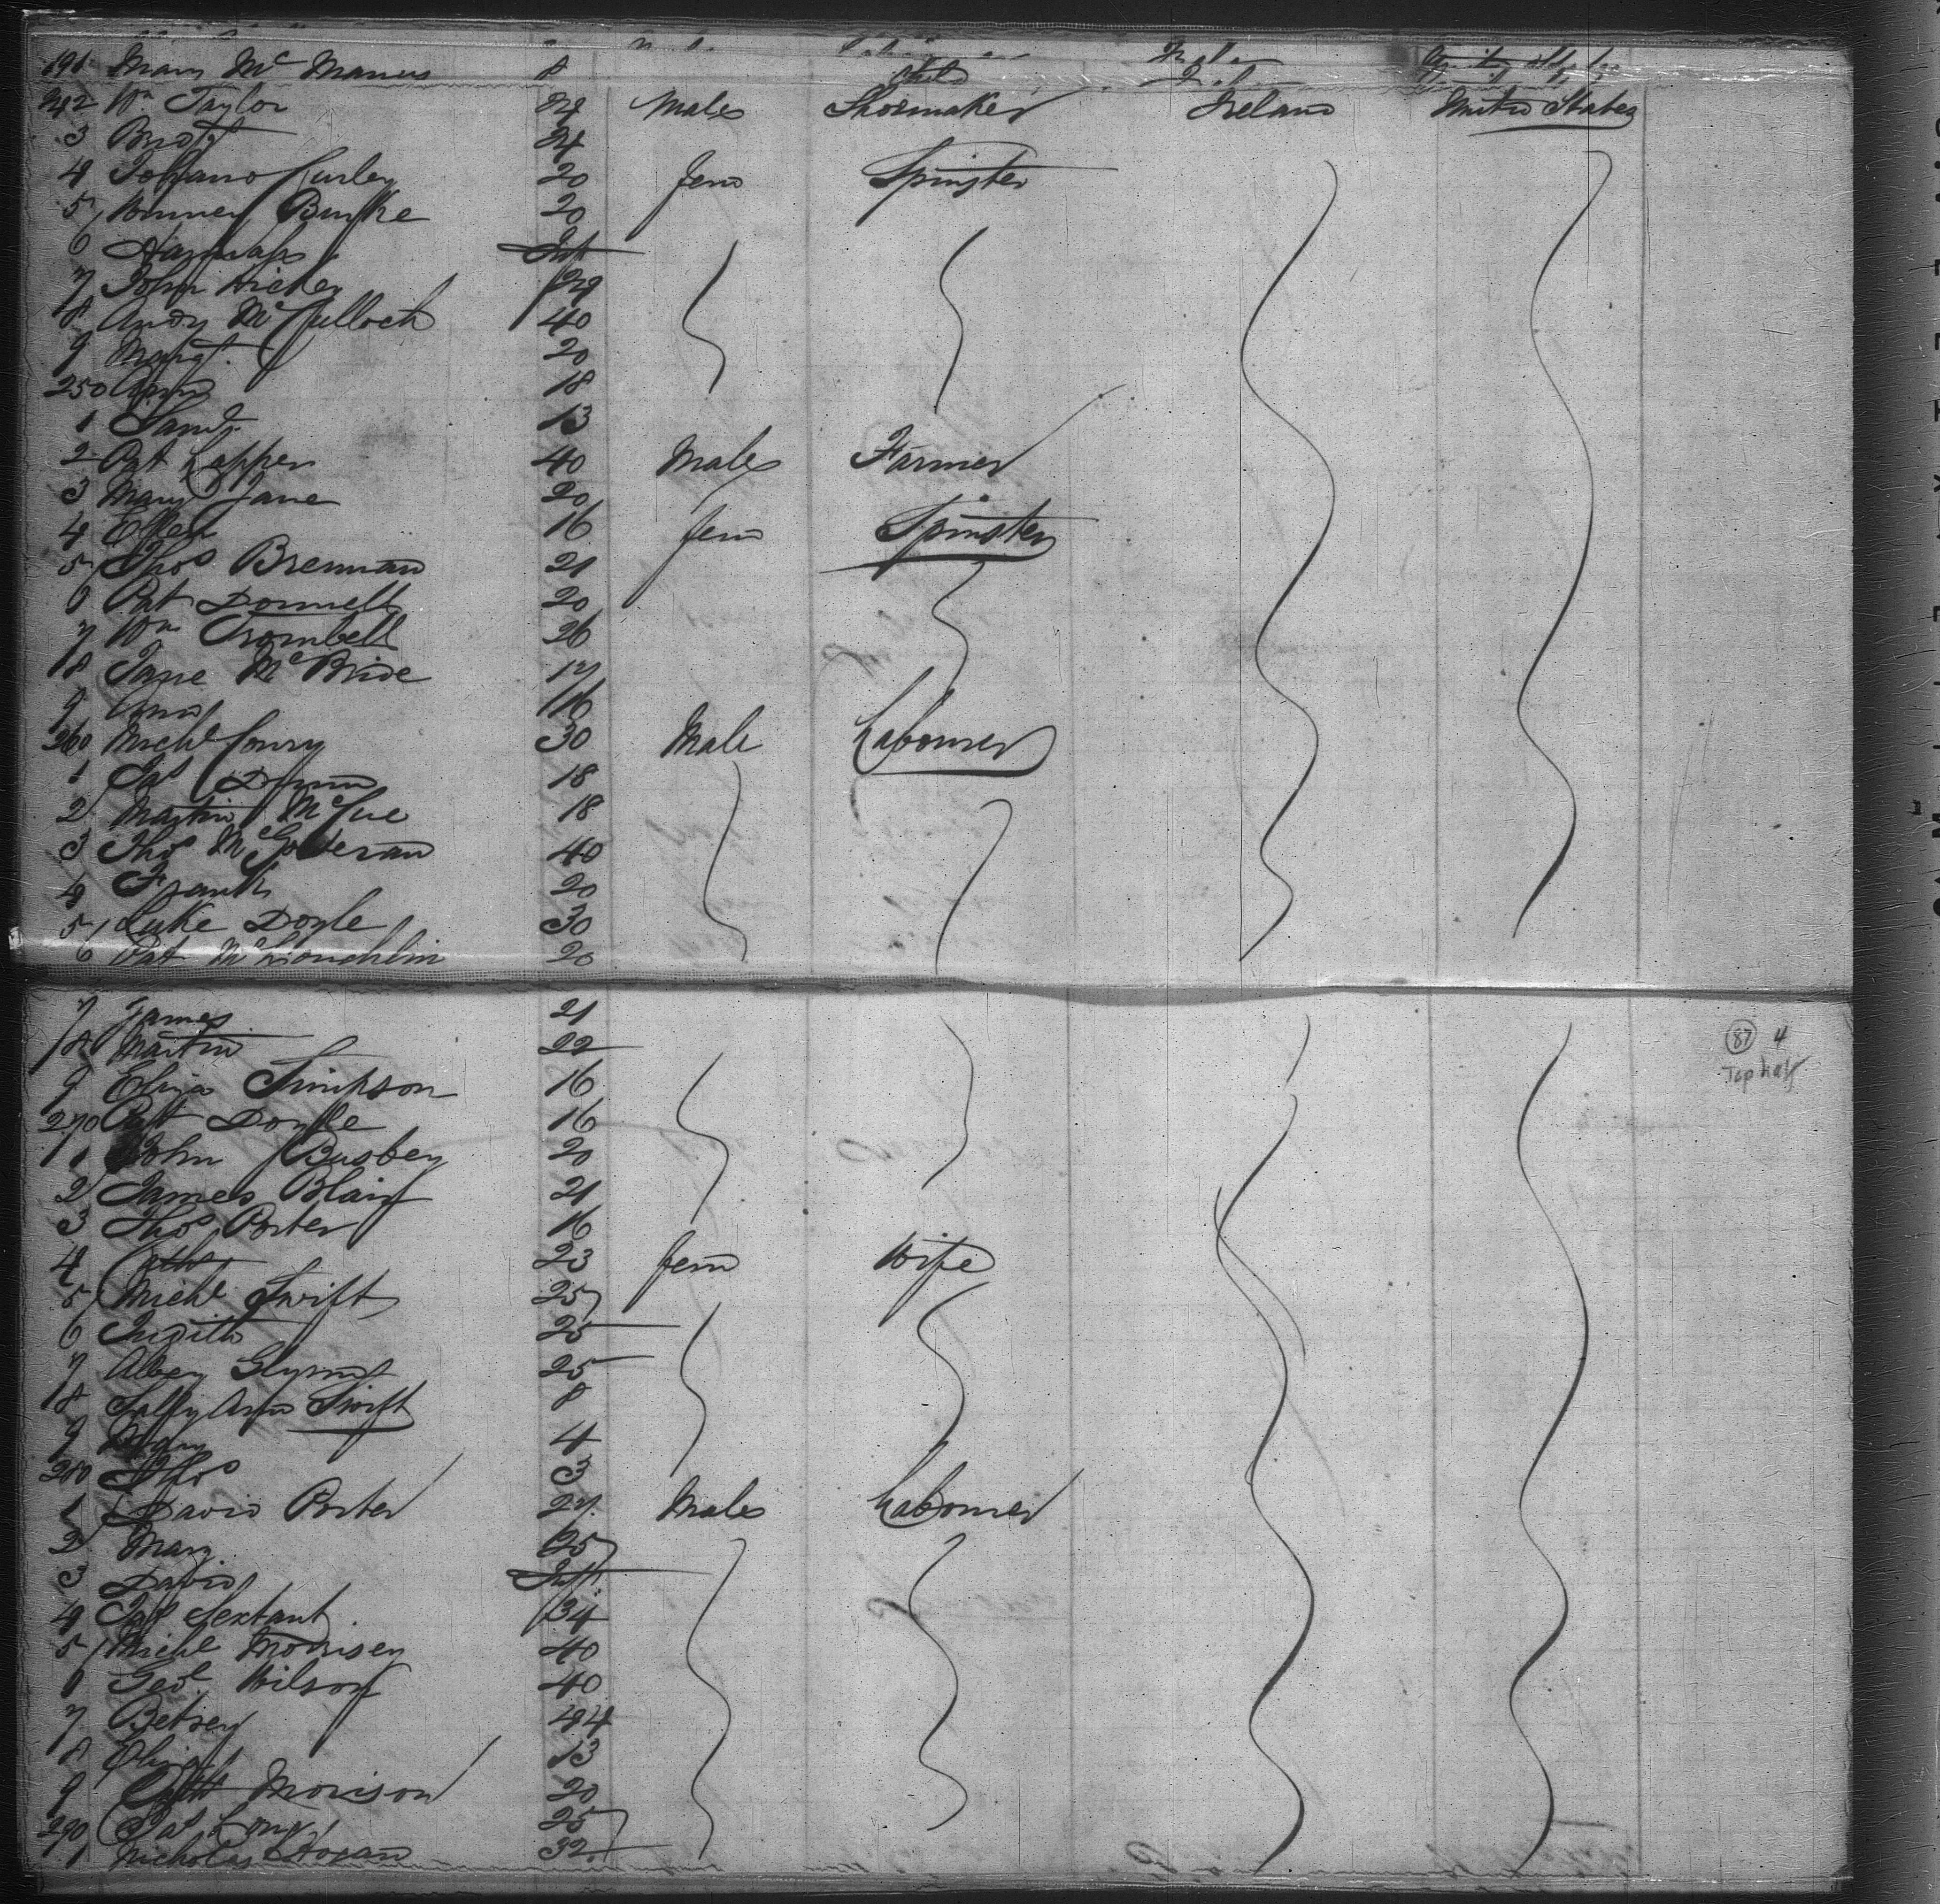 191 Mary Mc Manus 8 Child
242 Wm Taylor 24 Male Shoemaker Ireland United States
3 Bridgt 24
4 Johanna Curley 20 Fem Spinster
5 Burke 20
6 Hannah Inft
7 John Hickey 24
8 Andy Mc Culloch 40
9 Margt. 20
250 Ann 18
1 Saml 13
2 Pat Leppen 40 Male Farmer
3 Mary Jane 20
4 Ellen 16 Fem Spinster
5 Thos Brennan 21
6 Pat Donnell 20
7 Wm Trombell 26
8 Jane McBride 17
9 Ann 16
260 Michl Conry 30 Male Labourer
1 Jas Dunn 18
2 Martin McCue 18
3 Thos 40
4 Frank 20
5 Luke Doyle 30
6 Pat McLoughlin 20
7 James 21
8 Martin 22
9 Eliza Simpson 16
270 Pat Doyle 16
1 John Busbey 20
2 James Blair 21
3 Thos Porter 16
4 Cath 23 Fem Wife
5 Michl Swift 25
6 Judith 25
7 Abbey Glynn 25
8 Sally Ann Swift 8
9 Mary 4
280 Thos 3
1 David Porter 27 Male Labourer
2 Mary 25
3 David Inft
4 Jas Sextant 34
5 Michl Morrisey 40
6 Geo. Wilson 40
7 Betsey 44
8 Eliza 13
9 Cath Morison 20
290 Pat Long 25
1 Nicholas Horan 32
87 4
Top half